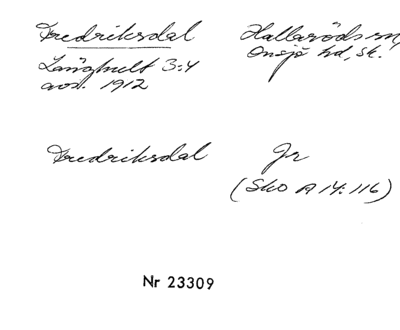 Fredriksdal Hallaröds sn
Onsjö hd, Sk.
Långhult 3:4
avs. 1912
Fredriksdal Jr
(Sko A 14:116)
Nr 23309